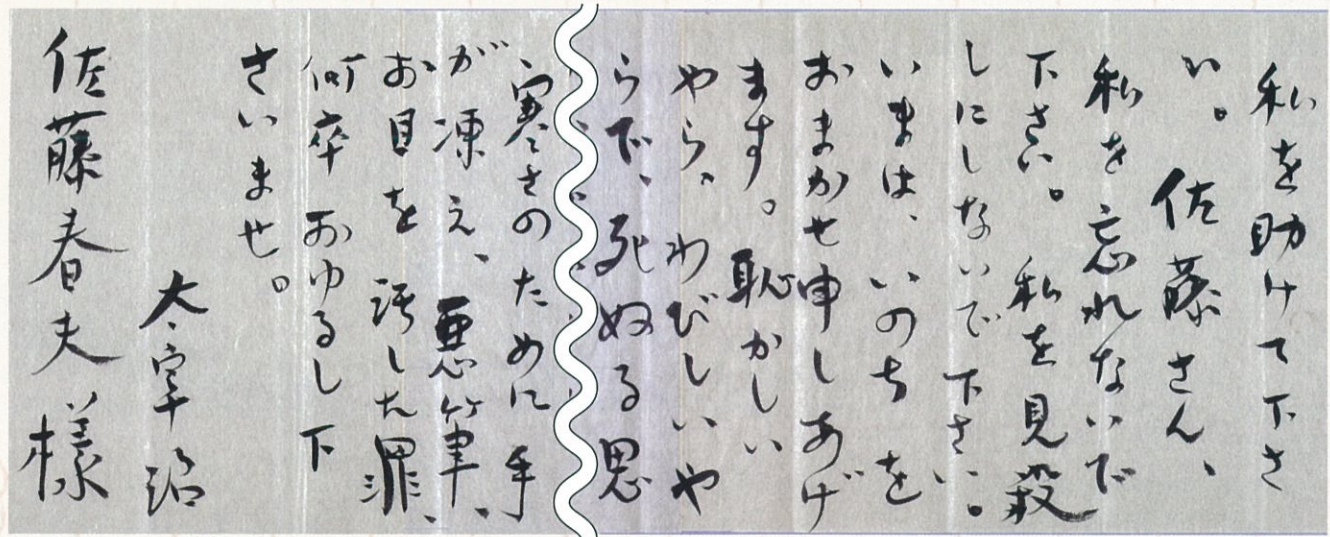 私を助けて下さ
い。 佐藤さん、
私を忘れないで
下さい。 私を見殺
しにしないで下さい。
いまは、いのちを
おまかせ申しあげ
ます。 恥かしい
やら、わびしいや
らで、死ぬる思
寒さのために手
が凍え、悪筆、
お目を汚した罪、
何卒おゆるし下
さいませ。
太宰治
佐藤春夫様